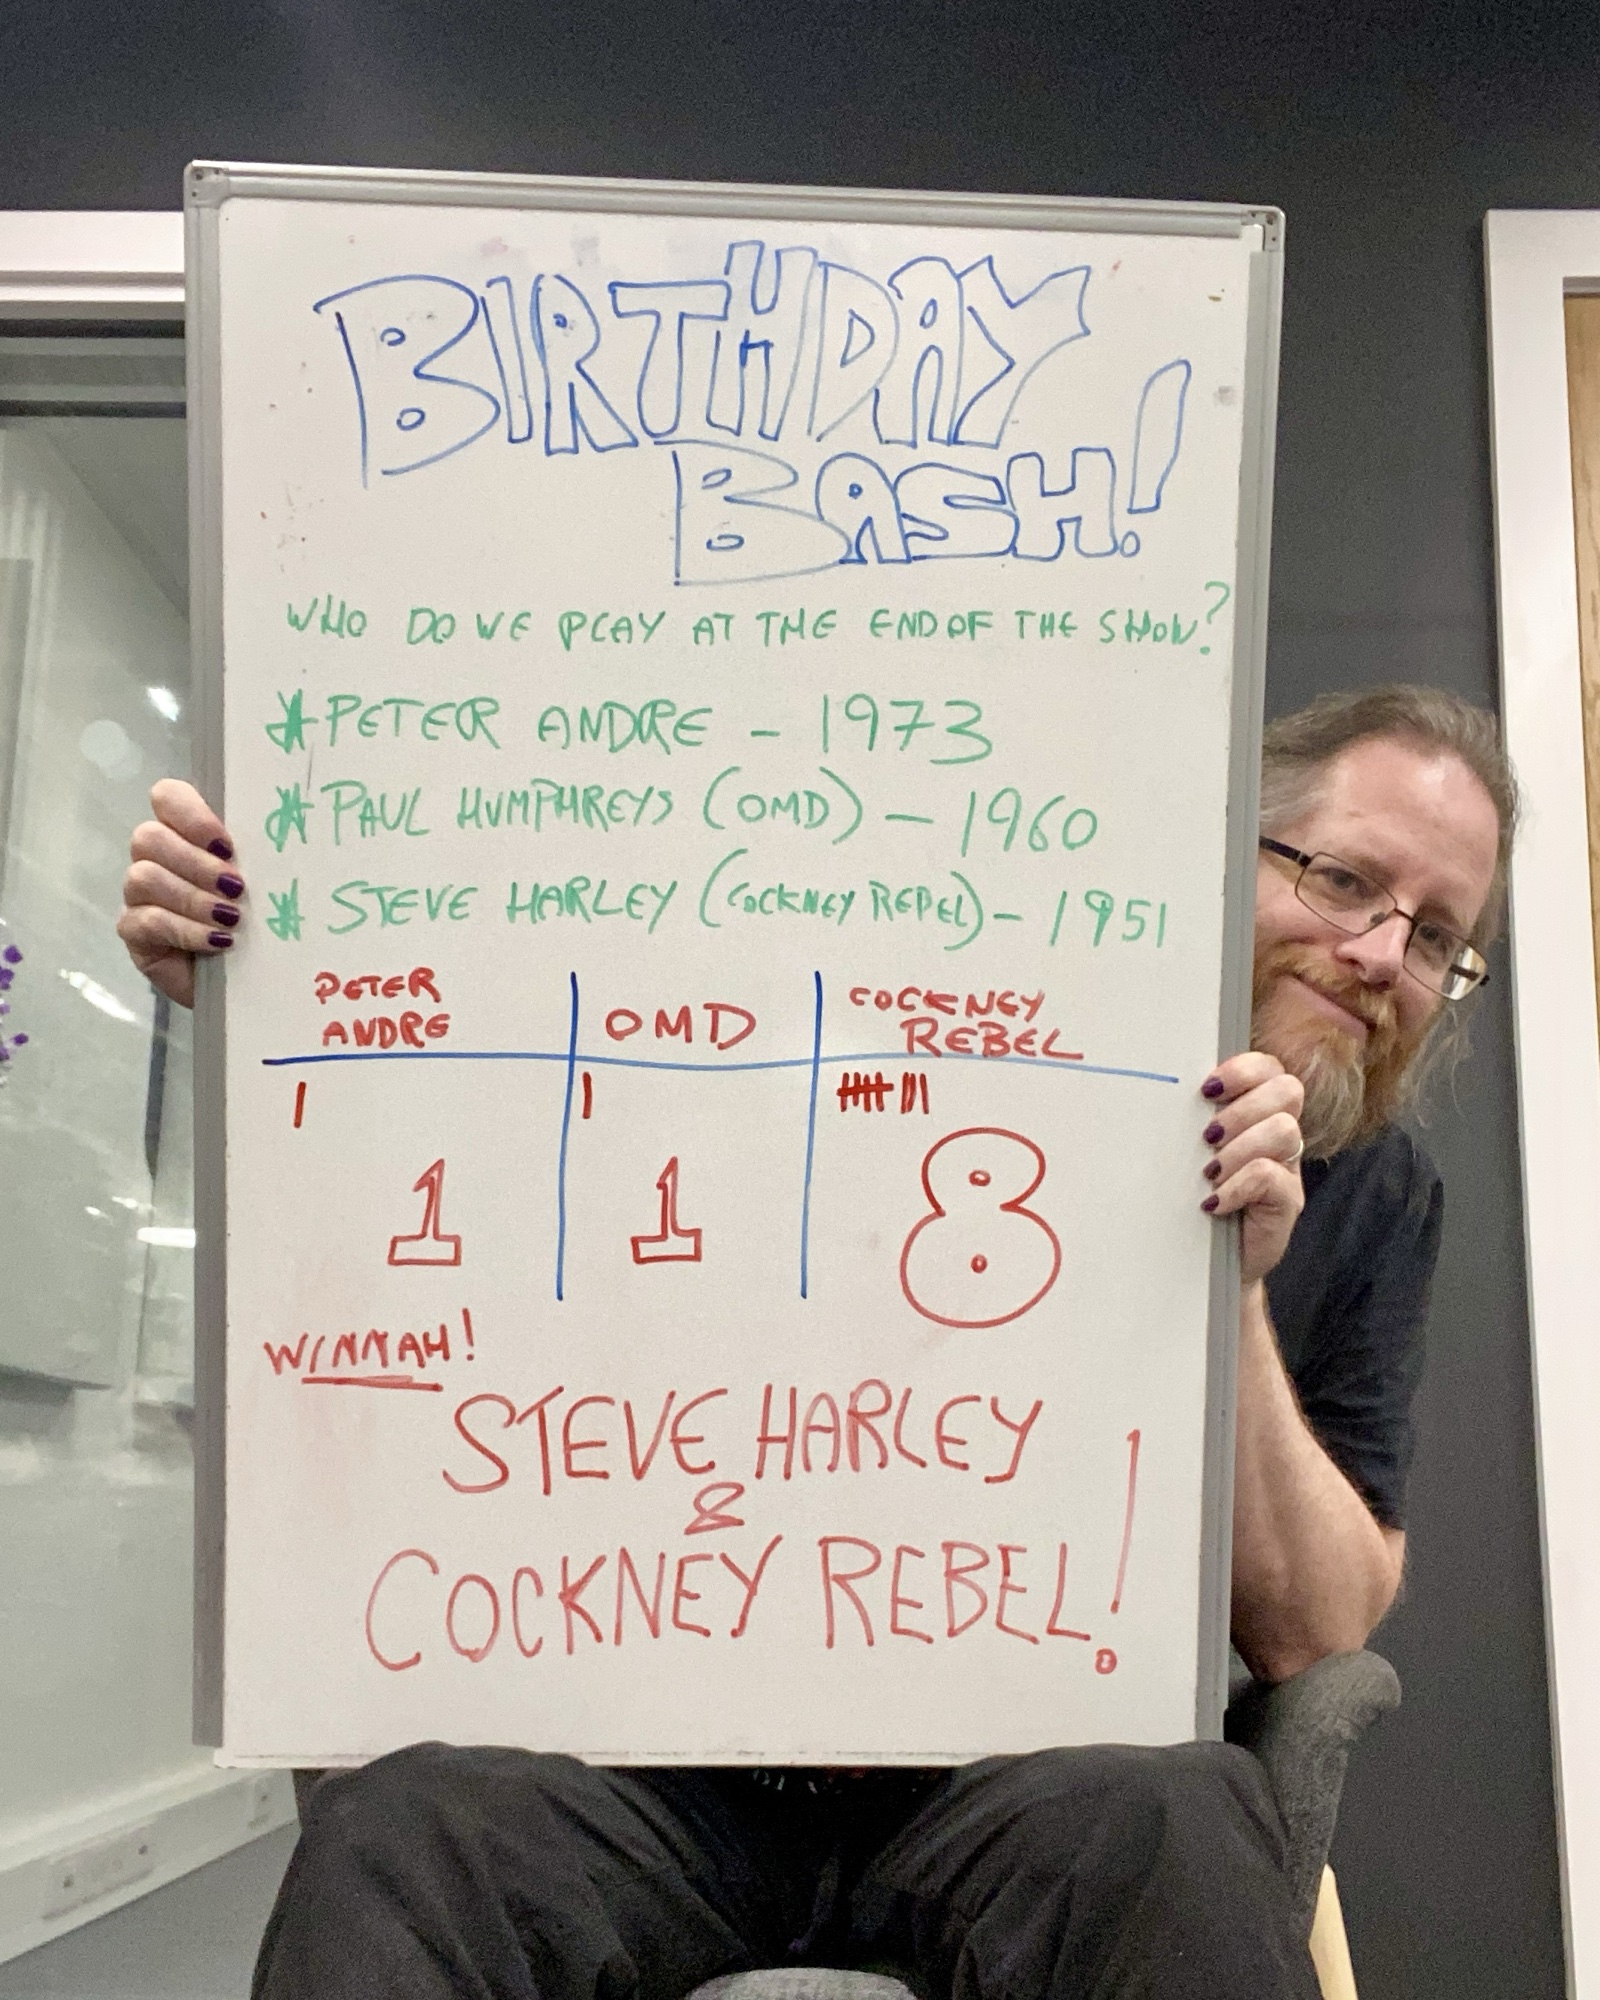 BIRTHDAY
BASH!
WHO DO WE PLAY AT THE END OF THE SHOW?
* PETER ANDRE - 1973
* PAUL HUMPHREYS (OMD) - 1960
* STEVE HARLEY (COCKNEY REBEL) - 1951
PETER ANDRE
OMD
COCKNEY REBEL
1
1
8
WINNAH!
STEVE HARLEY
&
COCKNEY REBEL!